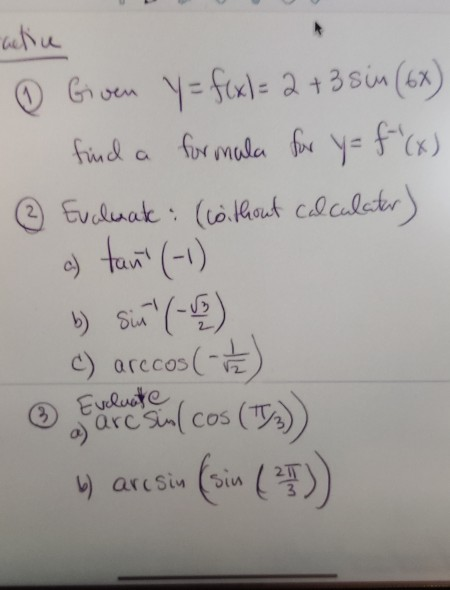 ① Given y = f(x) = 2 + 3 sin(6x)
find a formula for y = f⁻¹(x)
② Evaluate : (without calculator)
a) tan⁻¹(-1)
b) sin⁻¹(-√3/2)
c) arccos(-1/√2)
③ Evaluate
a) arcsin(cos(π/3))
b) arcsin(sin(2π/3))